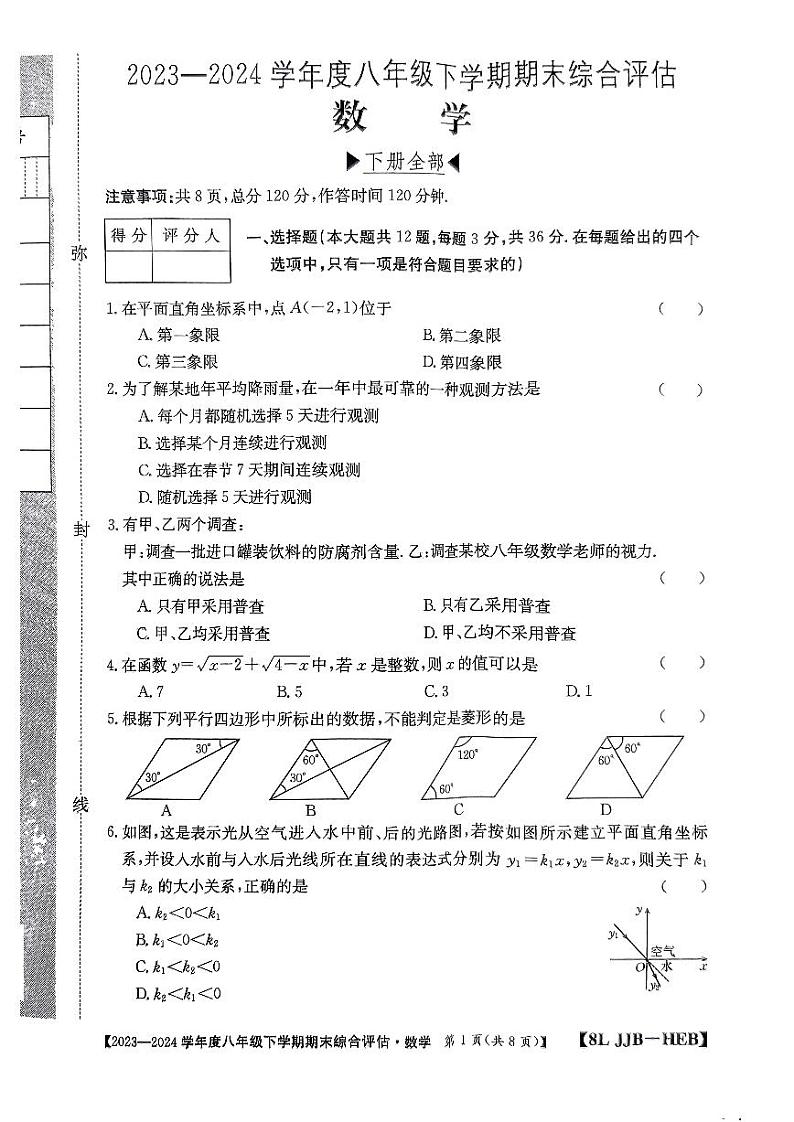 2023—2024 学年度八年级下学期期末综合评估
数 学
▶下册全部◀
注意事项:共 8 页,总分 120 分,作答时间 120 分钟.
得 分 评 分 人
一、选择题(本大题共 12 题,每题 3 分,共 36 分. 在每题给出的四个
选项中,只有一项是符合题目要求的)
弥
1. 在平面直角坐标系中,点 A(-2,1)位于 ( )
A. 第一象限 B. 第二象限
C. 第三象限 D. 第四象限
2. 为了解某地年平均降雨量,在一年中最可靠的一种观测方法是 ( )
A. 每个月都随机选择 5 天进行观测
B. 选择某个月连续进行观测
C. 选择在春节 7 天期间连续观测
D. 随机选择 5 天进行观测
封
3. 有甲、乙两个调查:
甲:调查一批进口罐装饮料的防腐剂含量. 乙:调查某校八年级数学老师的视力.
其中正确的说法是 ( )
A. 只有甲采用普查 B. 只有乙采用普查
C. 甲、乙均采用普查 D. 甲、乙均不采用普查
4. 在函数 y=√x-2+√4-x中,若 x 是整数,则 x 的值可以是 ( )
A. 7 B. 5 C. 3 D. 1
5. 根据下列平行四边形中所标出的数据,不能判定是菱形的是 ( )
30° 30° 60° 30° 120° 60° 60° 60°
A B C D
线
6. 如图,这是表示光从空气进入水中前、后的光路图,若按如图所示建立平面直角坐标
系,并设入水前与入水后光线所在直线的表达式分别为 y₁=k₁x,y₂=k₂x,则关于 k₁
与 k₂ 的大小关系,正确的是 ( )
A. k₂<0<k₁
B. k₁<0<k₂
C. k₁<k₂<0
D. k₂<k₁<0
y
y₁
空气
O 水 x
y₂
【2023—2024 学年度八年级下学期期末综合评估·数学 第 1 页(共 8 页)】 【8L JJB—HEB】